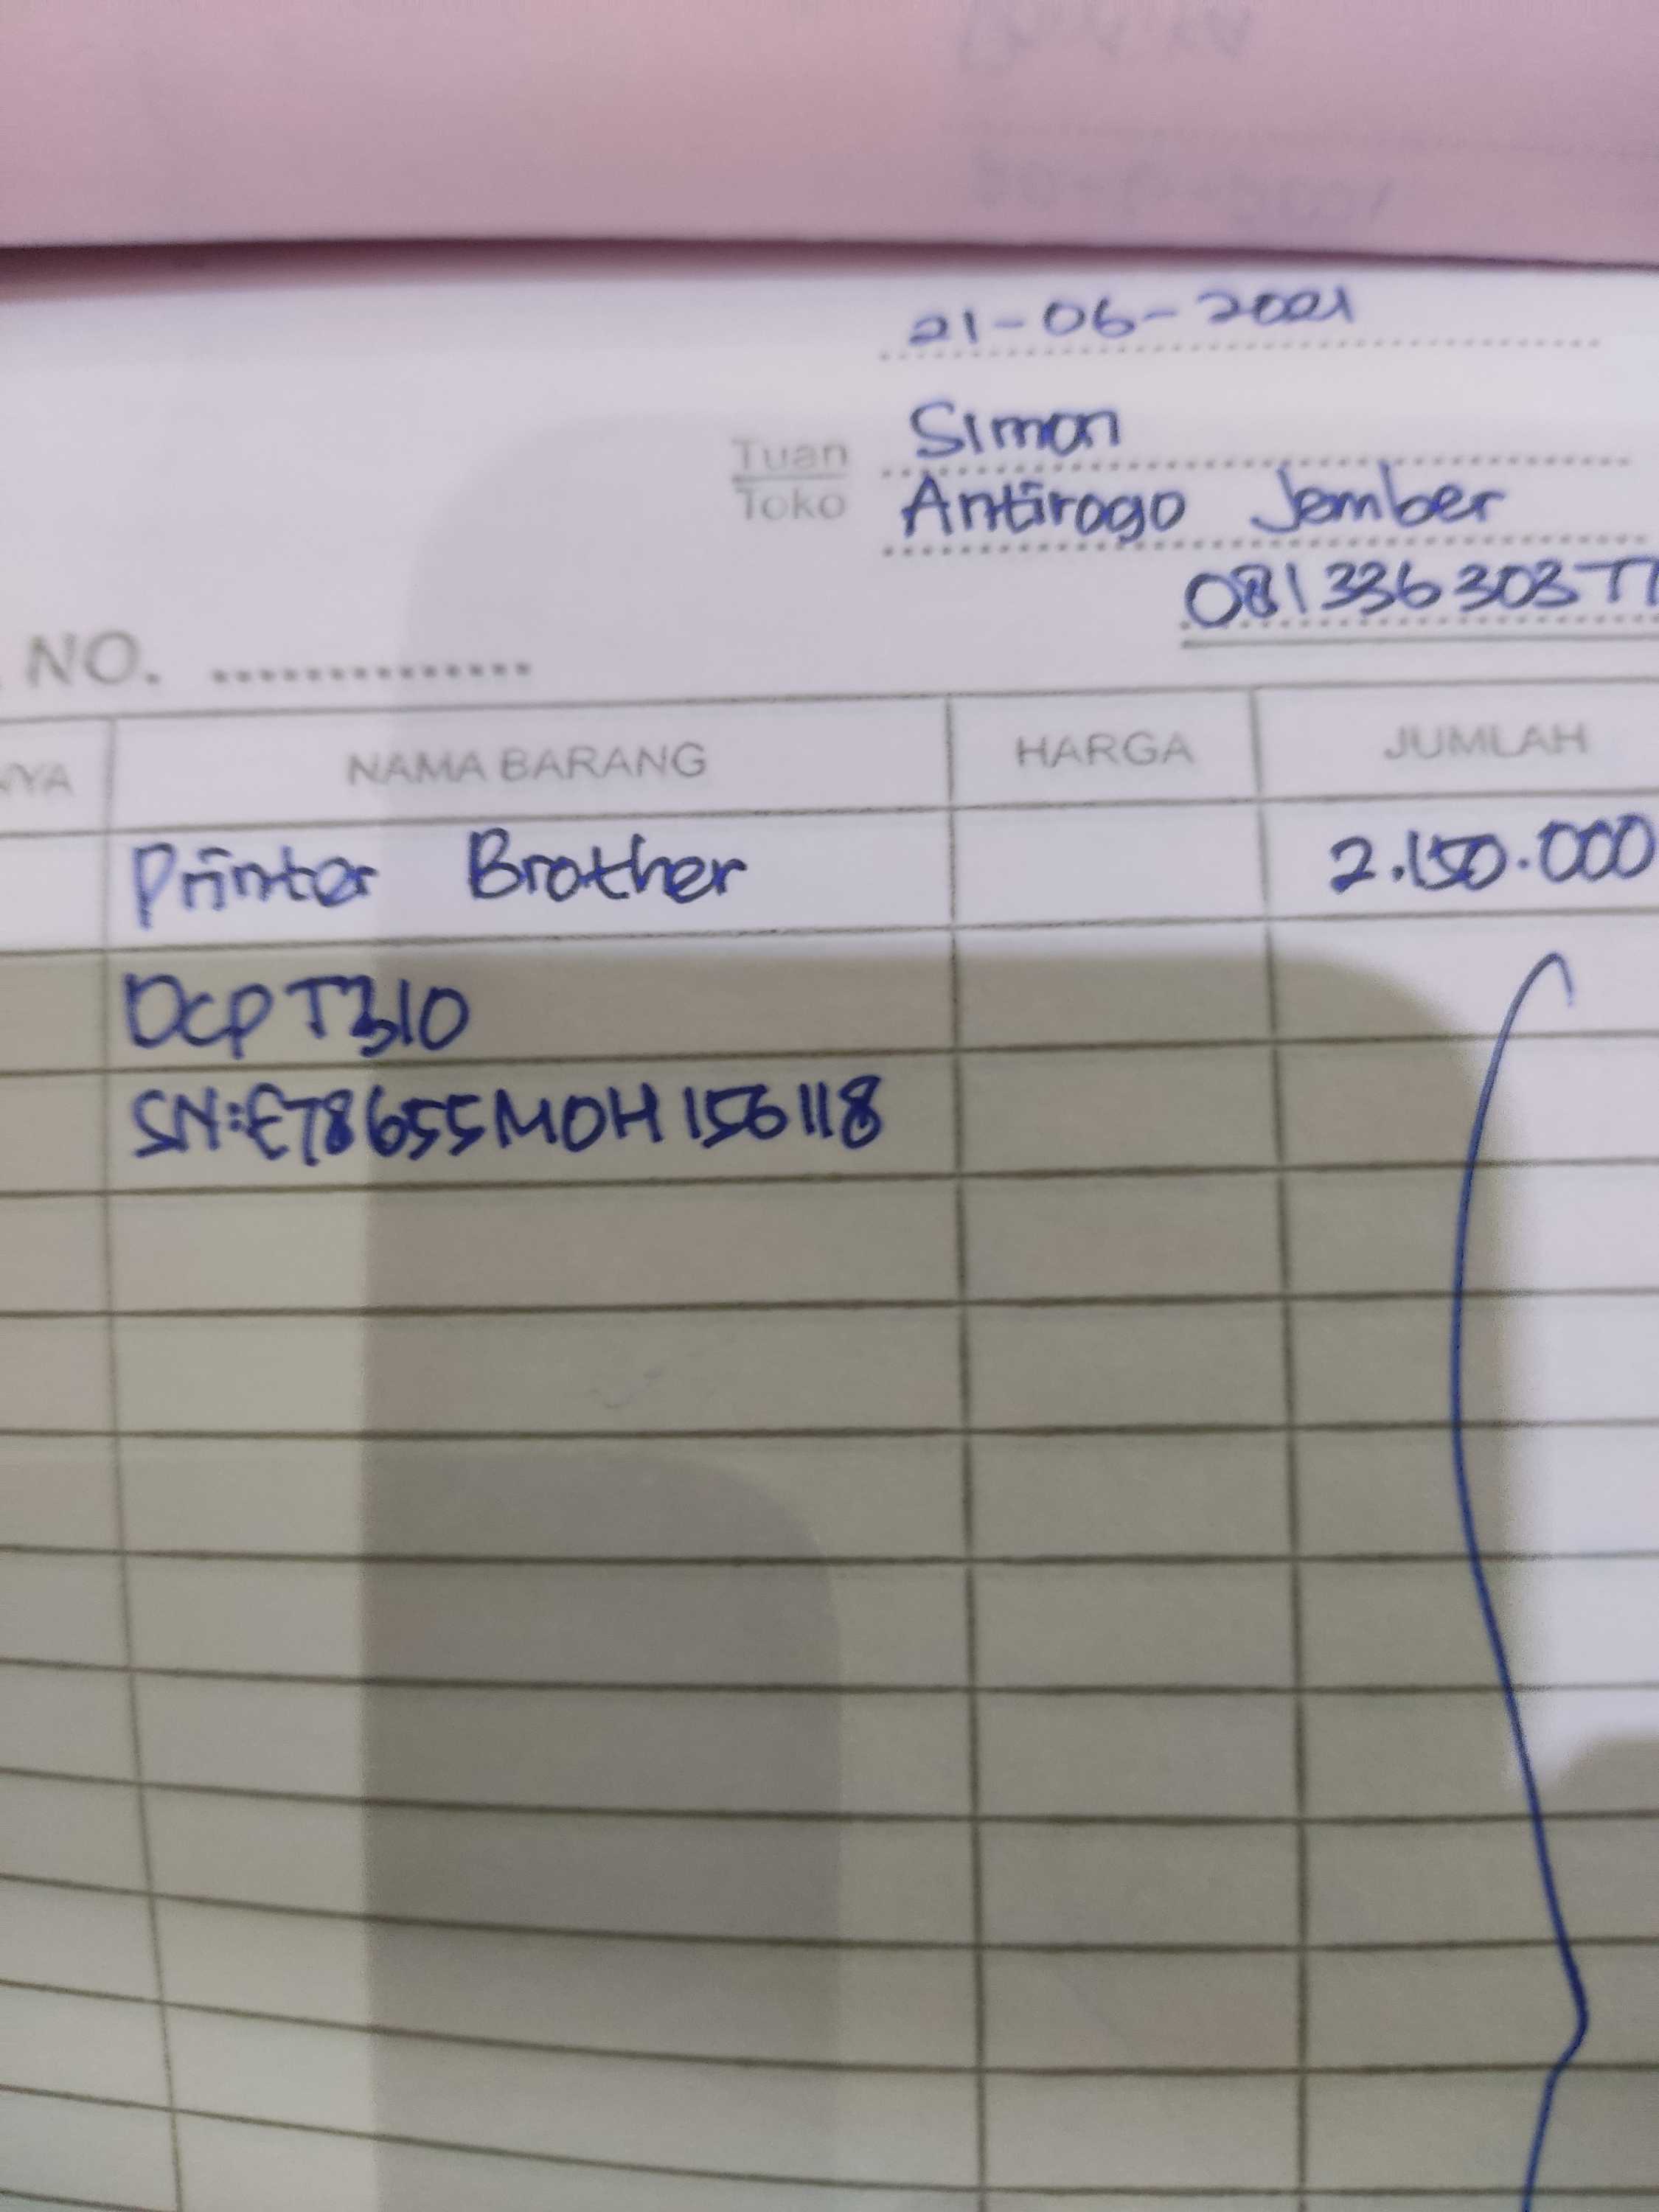 21-06-2021
Tuan Simon
Toko Antirogo Jember
08133630377
NO. ..............
NYA NAMA BARANG HARGA JUMLAH
Printer Brother 2.150.000
DCP T310
SN:E78655M0H156118